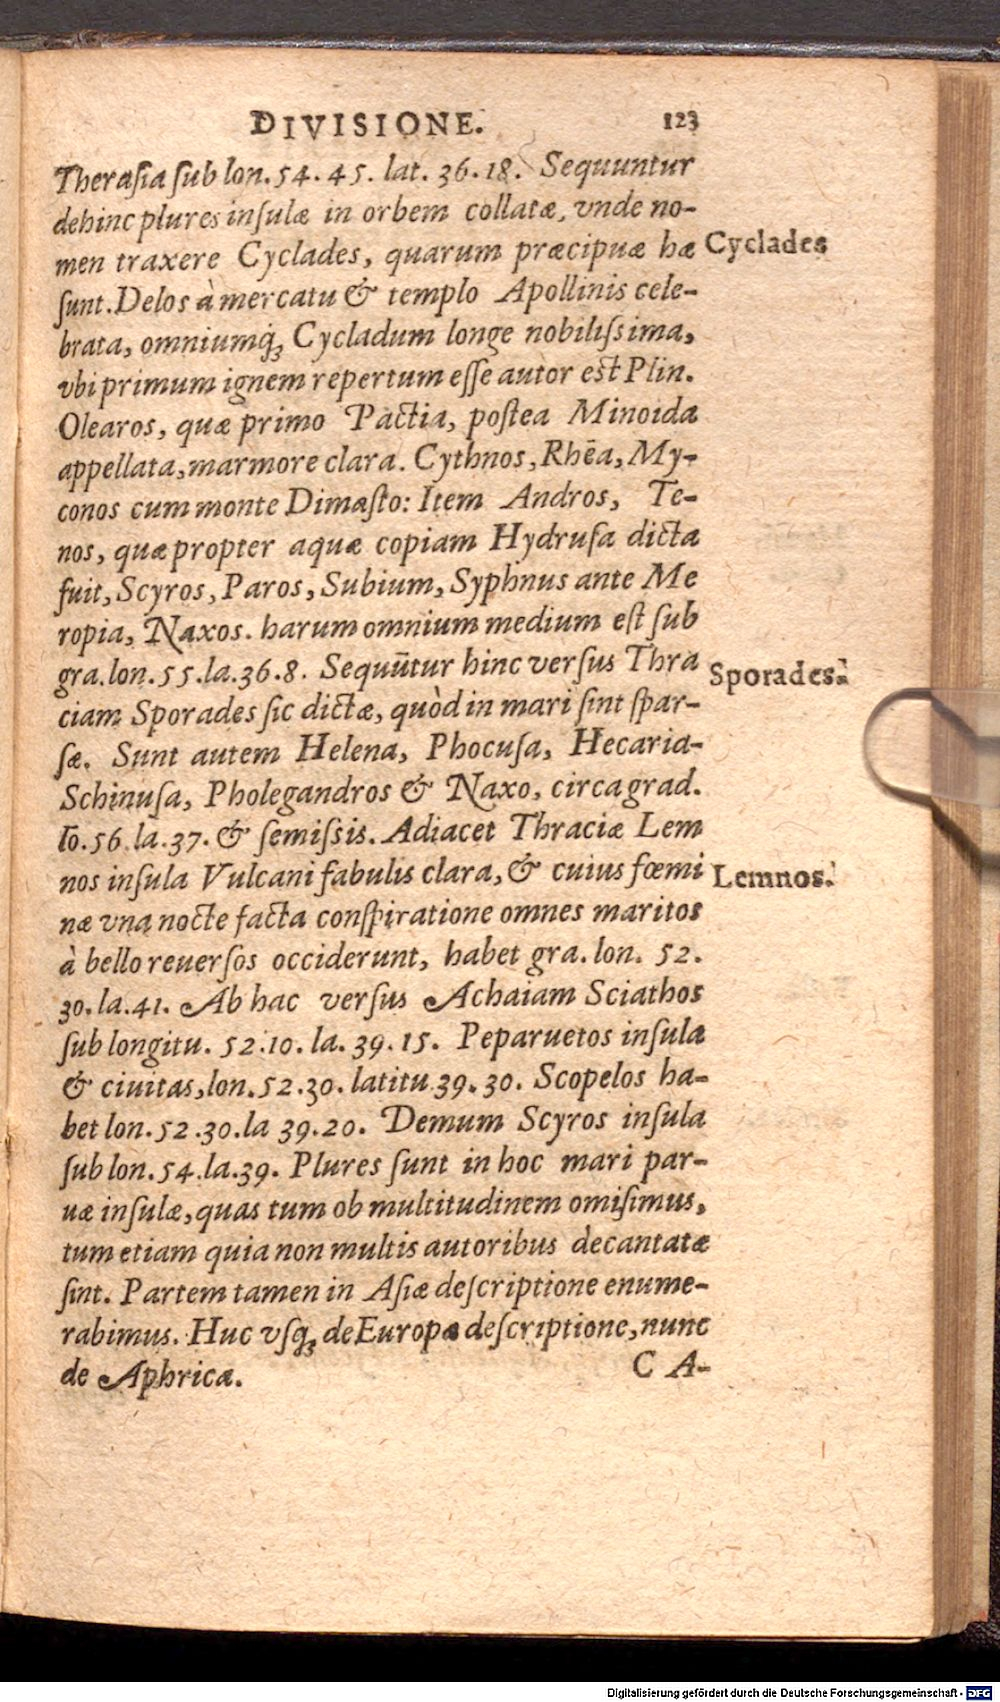 DIVISIONE. 123
Therasia ſub lon. 54. 45. lat. 36. 18. Sequuntur
dehinc plures inſulæ in orbem collatæ, vnde no-
men traxere Cyclades, quarum præcipuæ hæ
Cyclades
ſunt. Delos à mercatu & templo Apollinis cele-
brata, omniumq́ꝫ Cycladum longe nobiliſsima,
vbi primum ignem repertum eſſe autor eſt Plin.
Olearos, quæ primo Pactia, poſtea Minoida
appellata, marmore clara. Cythnos, Rhēa, My-
conos cum monte Dimaſto: Item Andros, Te-
nos, quæ propter aquæ copiam Hydruſa dicta
fuit, Scyros, Paros, Subium, Syphnus ante Me
ropia, Naxos. harum omnium medium eſt ſub
gra. lon. 55. la. 36. 8. Sequūtur hinc verſus Thra
Sporades.
ciam Sporades ſic dictæ, quòd in mari ſint ſpar-
ſæ. Sunt autem Helena, Phocuſa, Hecaria-
Schinuſa, Pholegandros & Naxo, circa grad.
lo. 56. la. 37. & ſemiſsis. Adiacet Thraciæ Lem
nos inſula Vulcani fabulis clara, & cuius fœmi
Lemnos.
næ vna nocte facta conſpiratione omnes maritos
à bello reuerſos occiderunt, habet gra. lon. 52.
30. la. 41. Ab hac verſus Achaiam Sciathos
ſub longitu. 52. 10. la. 39. 15. Peparuetos inſula
& ciuitas, lon. 52. 30. latitu 39. 30. Scopelos ha-
bet lon. 52. 30. la 39. 20. Demum Scyros inſula
ſub lon. 54. la. 39. Plures ſunt in hoc mari par-
uæ inſulæ, quas tum ob multitudinem omiſimus,
tum etiam quia non multis autoribus decantatæ
ſint. Partem tamen in Aſiæ deſcriptione enume-
rabimus. Huc vſqꝫ de Europæ deſcriptione, nunc
de Aphricæ.
C A-
Digitalisierung gefördert durch die Deutsche Forschungsgemeinschaft - DFG